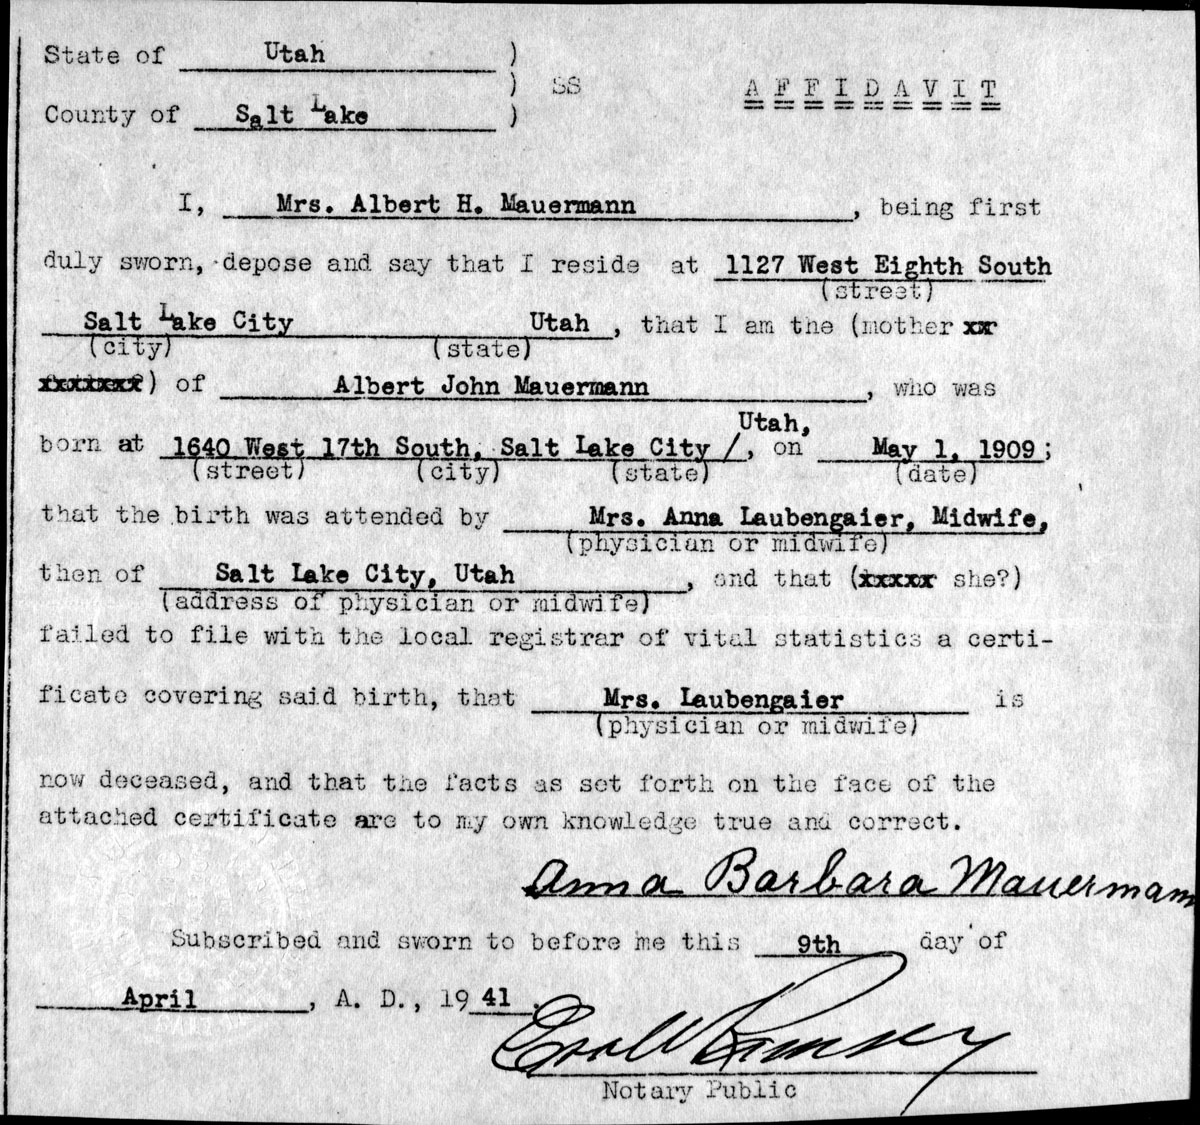 State of Utah )
) SS A F F I D A V I T
County of Salt Lake )
I, Mrs. Albert H. Mauermann, being first
duly sworn, depose and say that I reside at 1127 West Eighth South
(street)
Salt Lake City Utah, that I am the (mother xx
(city) (state)
xxxxxxx) of Albert John Mauermann, who was
Utah,
born at 1640 West 17th South, Salt Lake City /, on May 1, 1909;
(street) (city) (state) (date)
that the birth was attended by Mrs. Anna Laubengaier, Midwife,
(physician or midwife)
then of Salt Lake City, Utah, and that (xxxxx she?)
(address of physician or midwife)
failed to file with the local registrar of vital statistics a certi-
ficate covering said birth, that Mrs. Laubengaier is
(physician or midwife)
now deceased, and that the facts as set forth on the face of the
attached certificate are to my own knowledge true and correct.
Anna Barbara Mauermann
Subscribed and sworn to before me this 9th day of
April, A. D., 1941.
Ramsey
Notary Public